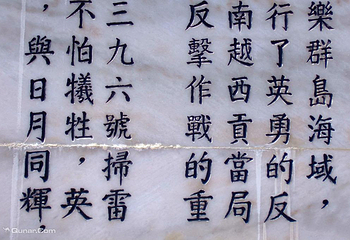 樂群島海域，
行了英勇的反
南越西貢當局
反擊作戰的重
三九六號掃雷
不怕犧牲，英
，與日月同輝，
Qunar.Com